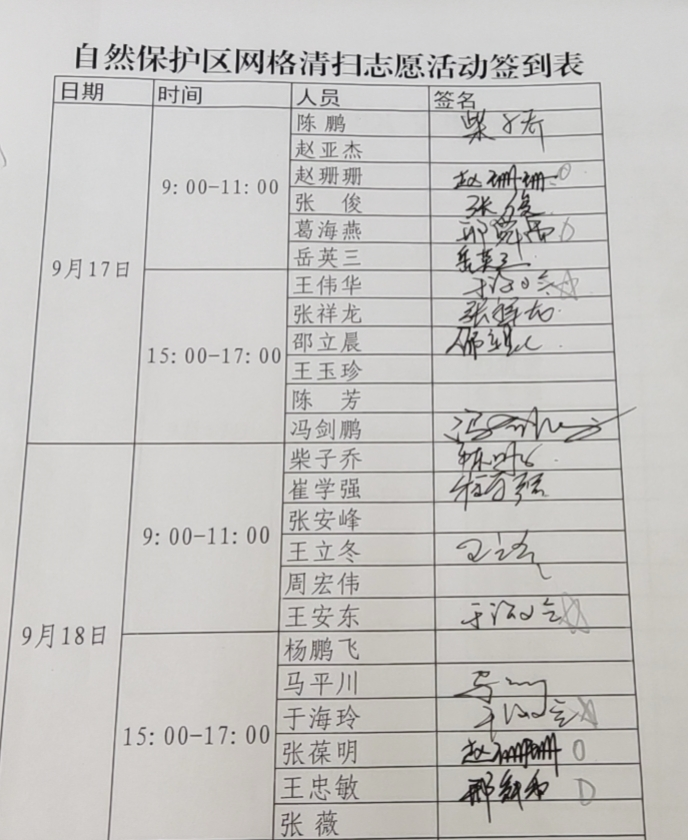 自然保护区网格清扫志愿活动签到表
日期 时间 人员 签名
9月17日
9:00-11:00
陈鹏 柴子乔
赵亚杰
赵珊珊 赵珊珊
张俊 张俊
葛海燕
岳英三 岳英三
15:00-17:00
王伟华
张祥龙 张祥龙
邵立晨 邵立晨
王玉珍
陈芳
冯剑鹏
9月18日
9:00-11:00
柴子乔
崔学强
张安峰
王立冬 王立冬
周宏伟
王安东
15:00-17:00
杨鹏飞
马平川
于海玲
张葆明 赵珊珊
王忠敏
张薇